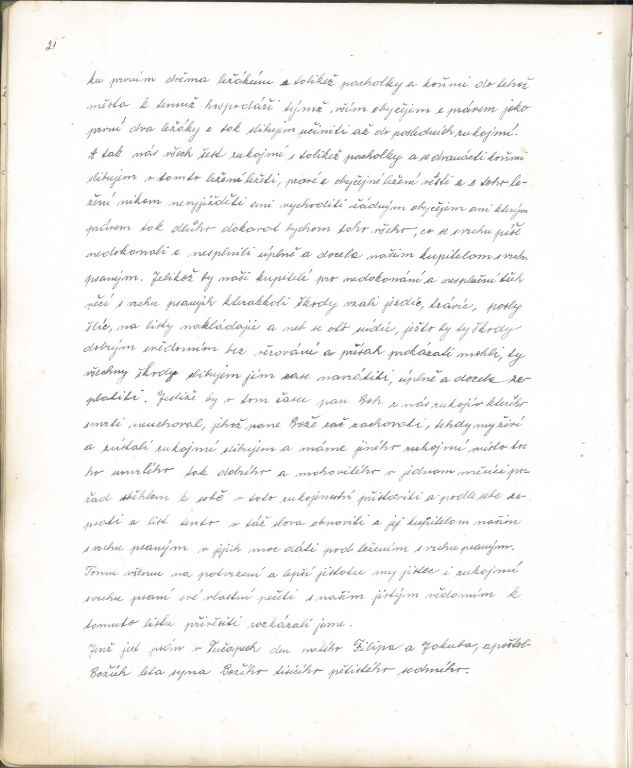 21
ku prvním dvěma ležákům s tolikéž pacholky a koňmi do téhož
města k témuž hospodáři týmž vším obyčejem a právem jako
první dva ležáky a tak slibujem učiniti až do posledních rukojmí.
A tak nás všech šest rukojmí s tolikéž pacholky a se dvanácti koňmi
slibujem v tomto ležení ležeti, pravé a obyčejné ležení vésti a z toho le-
žení nikam nevyjížděti ani vychoditi žádným obyčejem ani kterým
právem tak dlúho dokavad bychom toho všeho, co se svrchu píše
nedokonali a nesplnili úplně a docela našim kupitelom svrchu
psaným. Jelikož by naši kupitelé pro nedokonání a nesplnění těch
věcí svrchu psaných kterakkoli škody vzali jezdíc, trávíc, posly
šlíc, na listy nakládajíc a neb se oto súdíc, ješto by ty škody
dobrým svědomím bez věrování a přísah prokázati mohli, ty
všechny škody slibujem jim zase navrátiti, úplně a docela za-
platiti. Jestliž by v tom času pan Bóh z nás rukojmí kterého
smrti neuchoval, jehož pane Bože rač zachovati, tehdy my živí
a zůstalí rukojmí slibujem a máme jiného rukojmí místo to-
ho umrlého tak dobrého a mohovitého v jednom měsíci po-
řád zběhlem k sobě v toto rukojemství přistaviti a podle sebe za-
psati a list tento v táž slova obnoviti a jej kupitelom našim
svrchu psaným v jejich moc dáti pod ležením svrchu psaným.
Tomu všemu na potvrzení a lepší jistotu my jistec i rukojmí
svrchu psaní své vlastní pečeti s naším jistým vědomím k
tomuto listu přivěsiti rozkázali jsme.
Jenž jest psán v Tučapech den svatého Filipa a Jakuba, apoštol
Božích léta syna Božího tisícího pětistého sedmého.